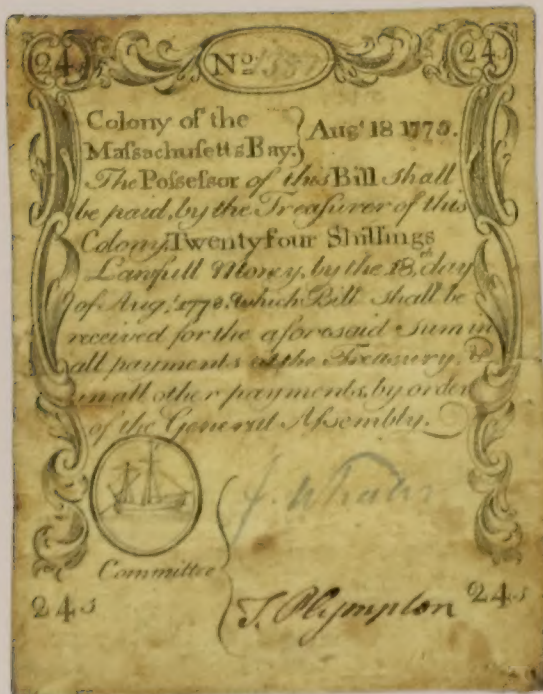 24s No 1557 24s
Colony of the
Maſsachusetts Bay. } Augt. 18 1775.
The Poſseſsor of this Bill shall
be paid, by the Treaſurer of this
Colony, Twenty four Shillings
Lawfull Money, by the 18th day
of Augt. 1778. which Bill shall be
received for the aforesaid sum in
all payments at the Treasury, &
in all other payments, by order
of the General Aſsembly.
J.
Committee
24s T. Plympton 24s